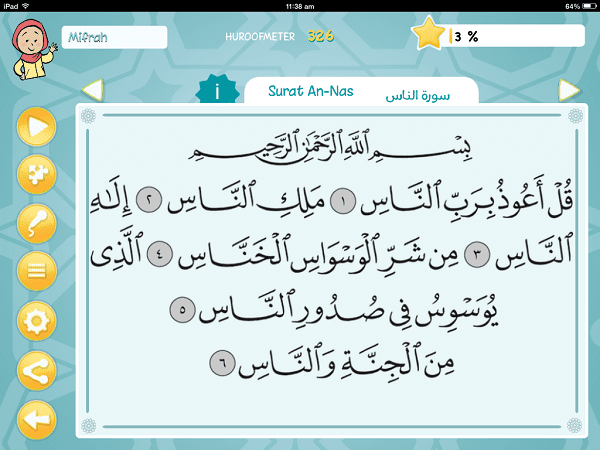 iPad 11:38 am 64%
Mifrah HUROOFMETER 326 3 %
i Surat An-Nas سورة الناس
بِسْمِ اللَّهِ الرَّحْمَٰنِ الرَّحِيمِ
قُلْ أَعُوذُ بِرَبِّ النَّاسِ ١ مَلِكِ النَّاسِ ٢ إِلَٰهِ
النَّاسِ ٣ مِن شَرِّ الْوَسْوَاسِ الْخَنَّاسِ ٤ الَّذِى
يُوَسْوِسُ فِى صُدُورِ النَّاسِ ٥
مِنَ الْجِنَّةِ وَالنَّاسِ ٦